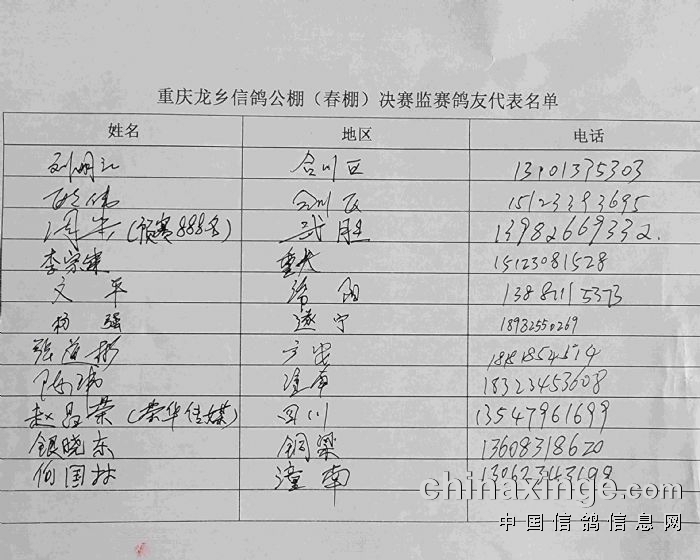 重庆龙乡信鸽公棚（春棚）决赛监赛鸽友代表名单
姓名 地区 电话
刘明江 合川区 13101375303
伟 合川区 15123393695
周 （预赛888名） 武胜 13982669332.
李宗 重大 15123081528
文平 阳
杨强 遂宁 18982550269
张 广安
陈 潼南 18323453608
赵昌荣（荣华传媒） 四川 13547961699
银晓东 铜梁 13608318620
何国林 潼南 13062343199
chinaxinge.com
中国信鸽信息网